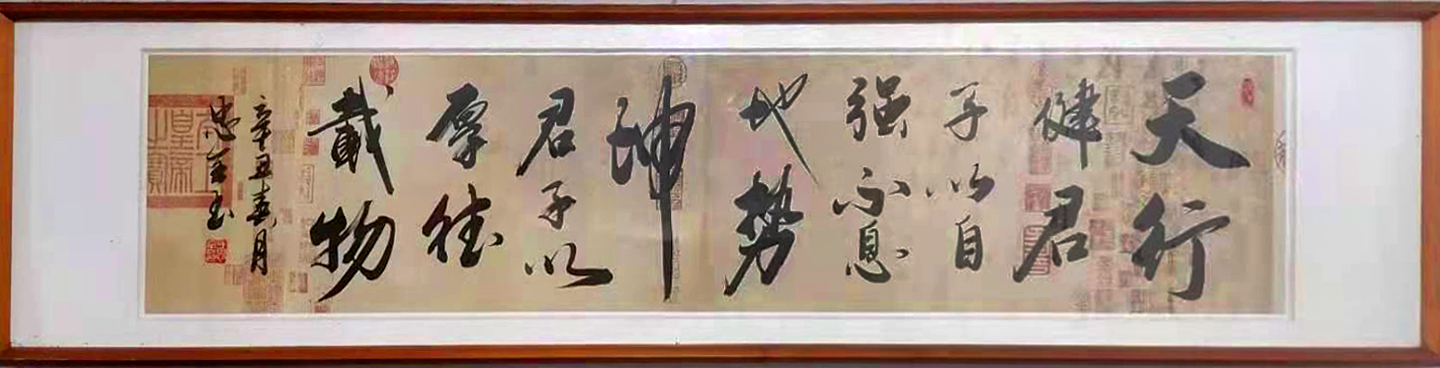 天行
健君
子以自
强不息
地势
坤
君子以
厚德
载物
辛丑春月